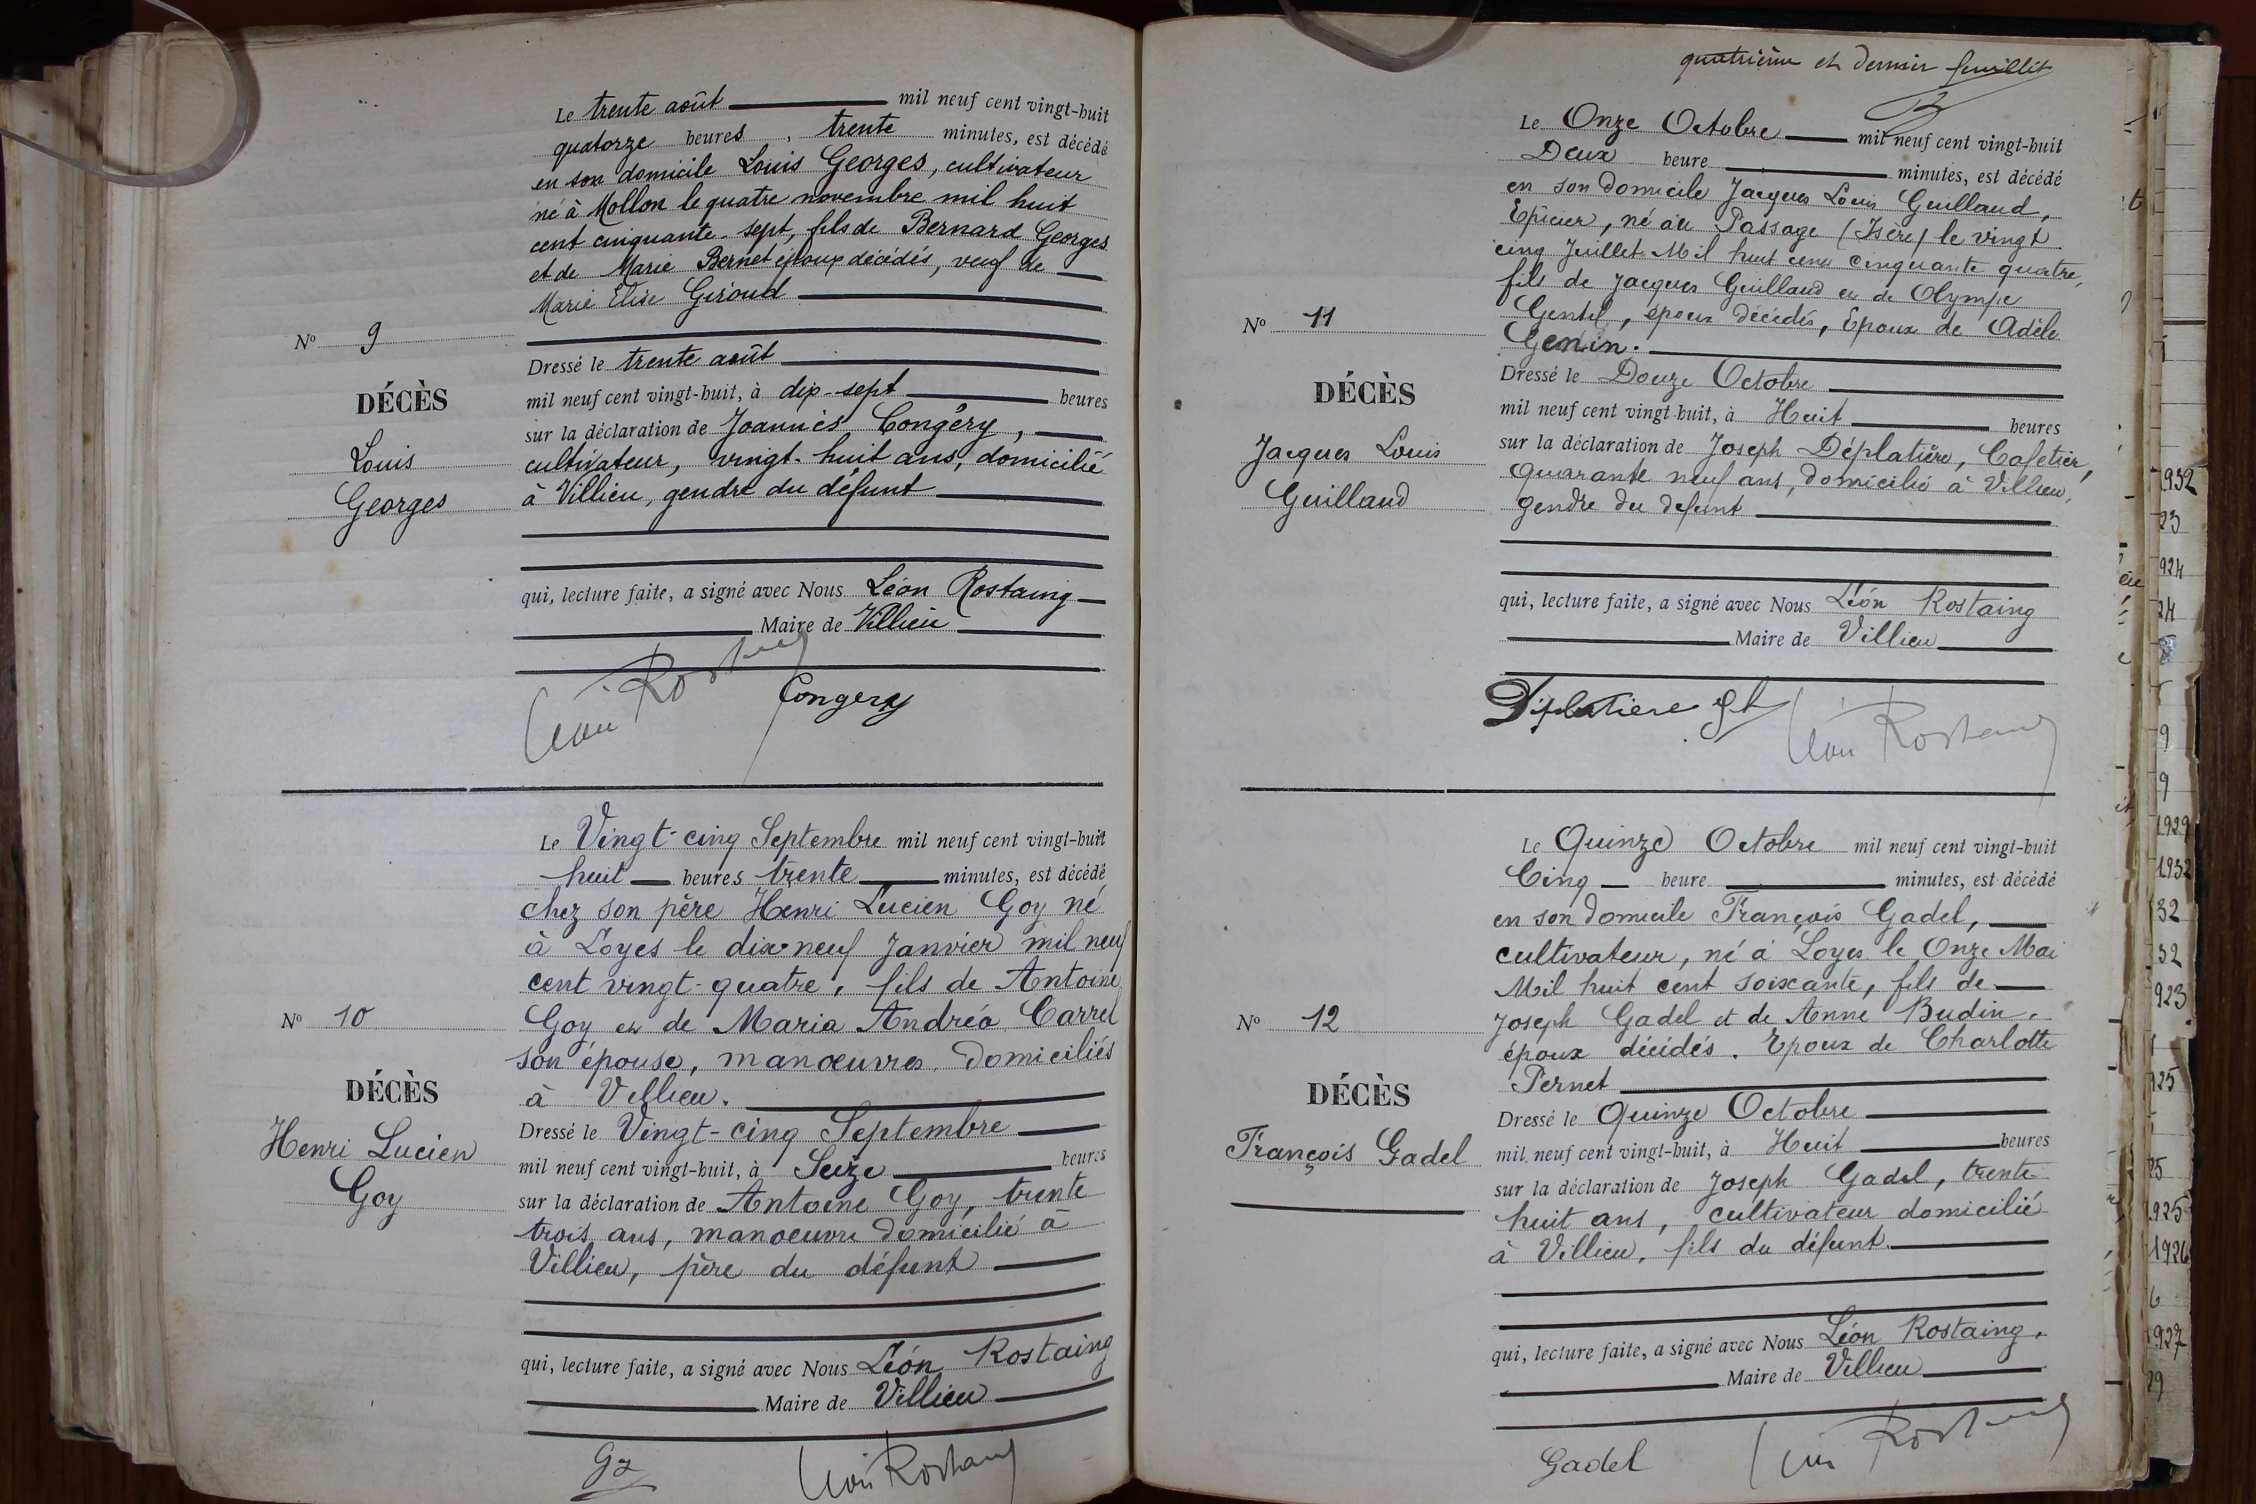 Le trente août mil neuf cent vingt-huit
quatorze heures, trente minutes, est décédé
en son domicile Louis Georges, cultivateur
né à Mollon le quatre novembre mil huit
cent cinquante-sept, fils de Bernard Georges
et de Marie Bernet époux décédés, veuf de
Marie Elise Giroud
N° 9
Dressé le trente août
DÉCÈS
mil neuf cent vingt-huit, à dix-sept heures
sur la déclaration de Joannès Congéry,
Louis
cultivateur, vingt-huit ans, domicilié
Georges
à Villieu, gendre du défunt
qui, lecture faite, a signé avec Nous Léon Rostaing
Maire de Villieu
Léon Rostaing
Congery
Le Vingt-cinq Septembre mil neuf cent vingt-huit
huit heures trente minutes, est décédé
chez son père Henri Lucien Goy né
à Loyes le dix neuf Janvier mil neuf
cent vingt-quatre, fils de Antoine
N° 10
Goy et de Maria Andréa Carrel
son épouse, manœuvres domiciliés
DÉCÈS
à Villieu.
Dressé le Vingt-cinq Septembre
Henri Lucien
mil neuf cent vingt-huit, à Seize heures
Goy
sur la déclaration de Antoine Goy, trente
trois ans, manoeuvre domicilié à
Villieu, père du défunt
qui, lecture faite, a signé avec Nous Léon Rostaing
Maire de Villieu
Léon Rostaing
quatrième et dernier feuillet
Le Onze Octobre mil neuf cent vingt-huit
Deux heure minutes, est décédé
en son domicile Jacques Louis Guillaud,
Epicier, né au Passage (Isère) le vingt
cinq Juillet Mil huit cent cinquante quatre,
fils de Jacques Guillaud et de Olympe
N° 11
Gentil, époux décédés, Epoux de Adèle
Genin.
Dressé le Douze Octobre
DÉCÈS
mil neuf cent vingt-huit, à Huit heures
Jacques Louis
sur la déclaration de Joseph Déplatière, Cafetier,
quarante neuf ans, domicilié à Villieu,
Guillaud
gendre du défunt
qui, lecture faite, a signé avec Nous Léon Rostaing
Maire de Villieu
Déplatiere
Léon Rostaing
Le Quinze Octobre mil neuf cent vingt-huit
Cinq heure minutes, est décédé
en son domicile François Gadel,
cultivateur, né à Loyes le Onze Mai
Mil huit cent soixante, fils de
N° 12
Joseph Gadel et de Anne Budin,
époux décédés. Epoux de Charlotte
DÉCÈS
Pernet
Dressé le Quinze Octobre
François Gadel
mil neuf cent vingt-huit, à Huit heures
sur la déclaration de Joseph Gadel, trente
huit ans, cultivateur domicilié
à Villieu, fils du défunt.
qui, lecture faite, a signé avec Nous Léon Rostaing,
Maire de Villieu
Gadel
Léon Rostaing
1932
23
924
24
9
9
1929
1932
32
32
923
925
25
1925
1926
6
927
29